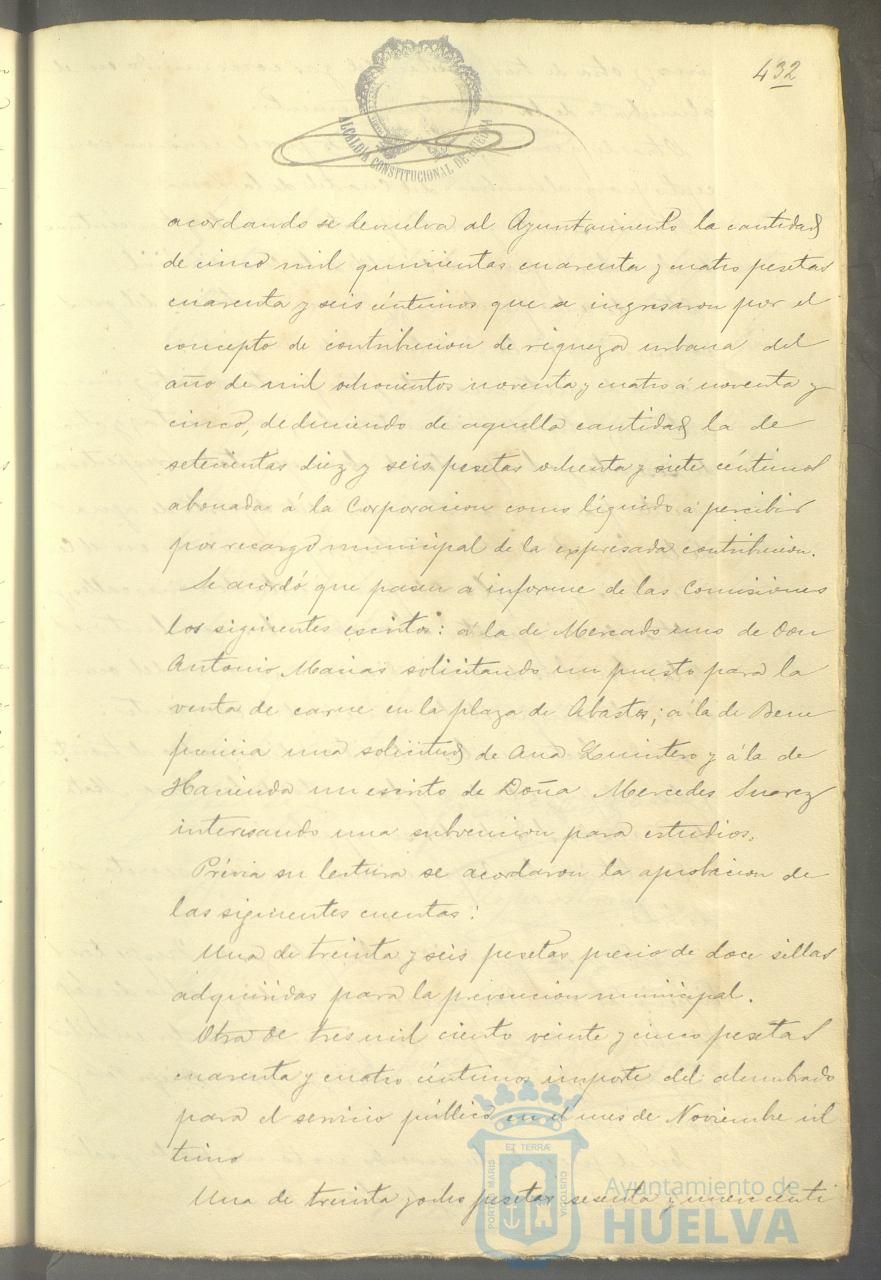 432
ALCALDIA CONSTITUCIONAL DE HUELVA
acordando se devuelva al Ayuntamiento la cantidad
de cinco mil quinientas cuarenta y cuatro pesetas
cuarenta y seis céntimos que se ingresaron por el
concepto de contribucion de riqueza urbana del
año de mil ochocientos noventa y cuatro á noventa y
cinco, deduciendo de aquella cantidad la de
setecientas diez y seis pesetas ochenta y siete céntimos
abonada á la Corporacion como líquido á percibir
por recargo municipal de la expresada contribucion.
Se acordó que pasen á informe de las Comisiones
los siguientes escritos: á la de Mercado uno de Don
Antonio Macias solicitando un puesto para la
venta de carne en la plaza de Abastos; á la de Bene
ficencia una solicitud de Ana Quintero y á la de
Hacienda un escrito de Doña Mercedes Suarez
interesando una subvencion para estudios.
Prévia su lectura se acordaron la aprobacion de
las siguientes cuentas:
Una de treinta y seis pesetas precio de doce sillas
adquiridas para la prevencion municipal.
Otra de tres mil ciento veinte y cinco pesetas
cuarenta y cuatro céntimos importe del alumbrado
para el servicio público en el mes de Noviembre úl
timo
Una de treinta y ocho pesetas sesenta y un centi
PORTUS MARIS ET TERRÆ CUSTODIA
Ayuntamiento de
HUELVA